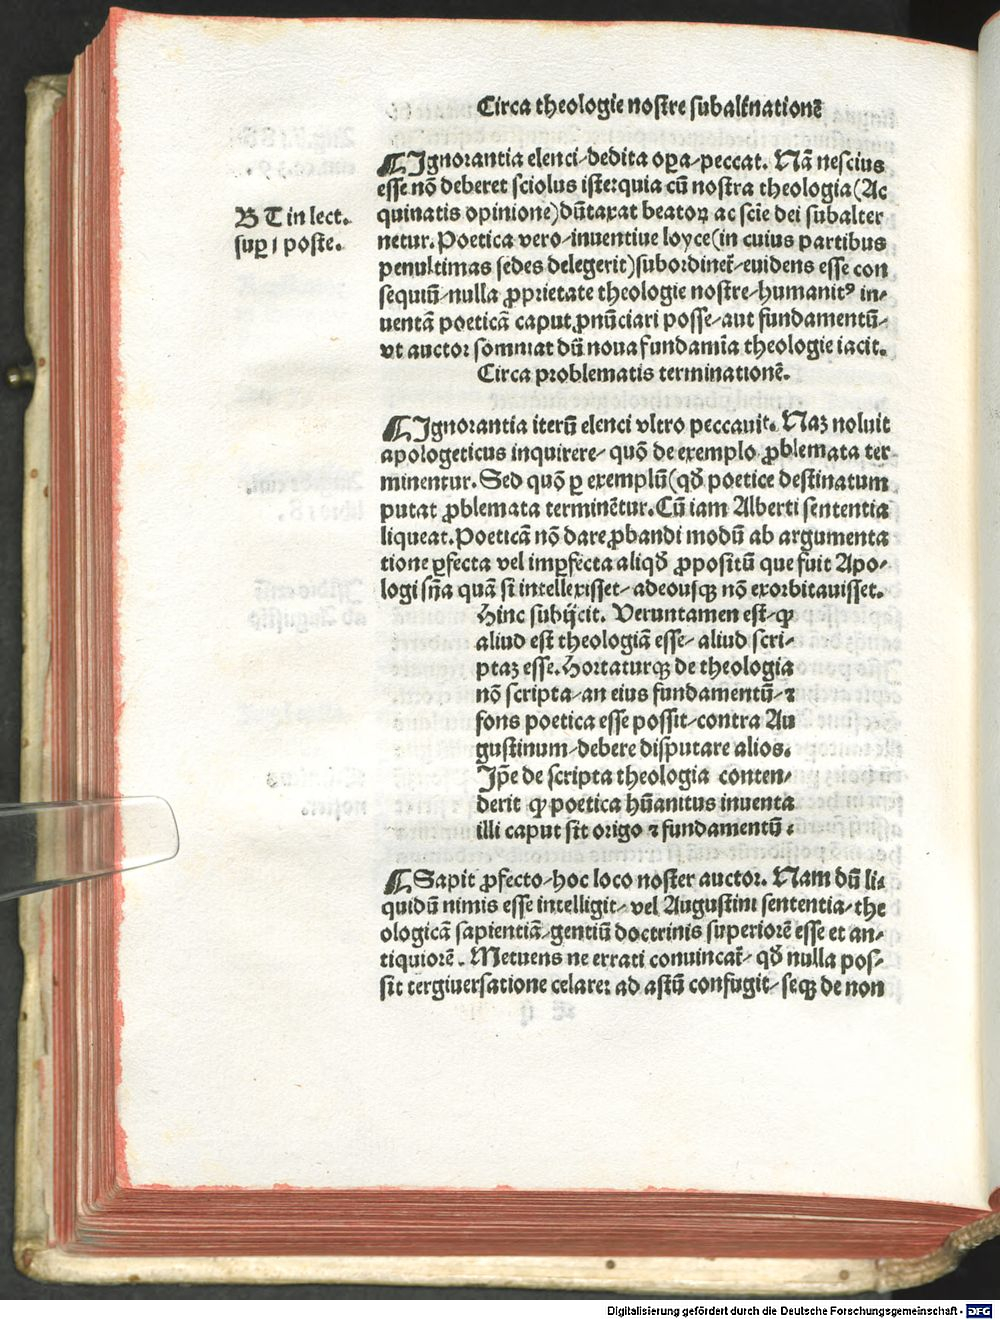 Circa theologie nostre subalt̄natione̅
¶ Ignorantia elenci/dedita oꝑa/peccat. Nā nescius
esse nō deberet sciolus iste:quia cū nostra theologia(Ac
quinatis opinione)dūtaxat beatoꝝ ac scie dei subalter
B T in lect.
supꝑ 1 poste.
netur. Poetica vero/inuentiue loyce(in cuius partibus
penultimas sedes delegerit)subordinet̄/euidens esse con
sequiū/nulla ꝓprietate theologie nostre/humanitꝰ in/
uentā poeticā caput ꝓnūciari posse/aut fundamentū/
vt auctor somniat dū noua fundamīa theologie iacit.
Circa problematis terminationē.
¶ Ignorantia iterū elenci vltro peccauit. Naꝫ noluit
apologeticus inquirere/quō de exemplo ꝓblemata ter
minentur. Sed quō ꝑ exemplū(qđ poetice destinatum
putat ꝓblemata terminētur. Cū iam Alberti sententia
liqueat. Poeticā nō dare ꝓbandi modū ab argumenta
tione ꝑfecta vel imꝑfecta aliqđ ꝓpositū que fuit Apo/
logi sn̄a quā si intellexisset/adeousqꝫ nō exorbitauisset.
Hinc subijcit. Veruntamen est/ꝙ
aliud est theologiā esse/aliud scri/
ptaꝫ esse. Hortaturqꝫ de theologia
nō scripta/an eius fundamentū/⁊
fons poetica esse possit/contra Au
gustinum/debere disputare alios.
Ip̄e de scripta theologia conten/
derit ꝙ poetica hūanitus inuenta
illi caput sit origo ⁊ fundamentū:
¶ Sapit ꝓfecto/hoc loco noster auctor. Nam dū li/
quidū nimis esse intelligit/vel Augustini sententia/the
ologicā sapientiā/gentiū doctrinis superiorē esse et an/
tiquiorē. Metuens ne errati conuincat̄/qđ nulla pos/
sit tergiuersatione celare: ad astū confugit/seqꝫ de non
Digitalisierung gefördert durch die Deutsche Forschungsgemeinschaft - DFG